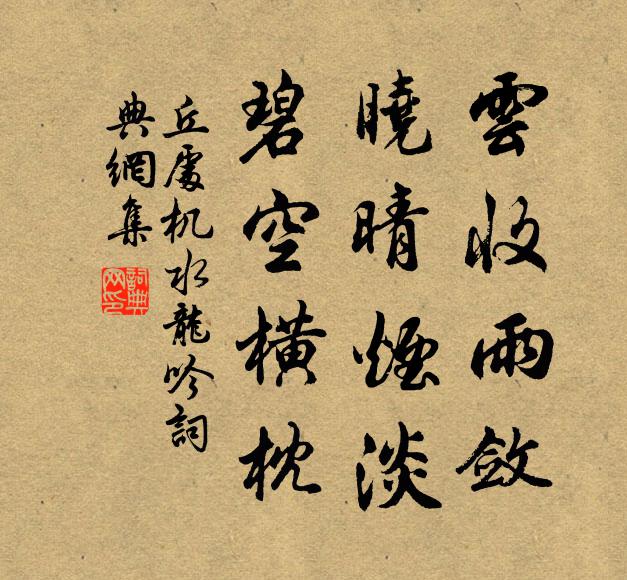 雲收雨斂
曉晴煙淡
碧空橫枕
丘處机水龍吟詞
典網集
詞典
网印